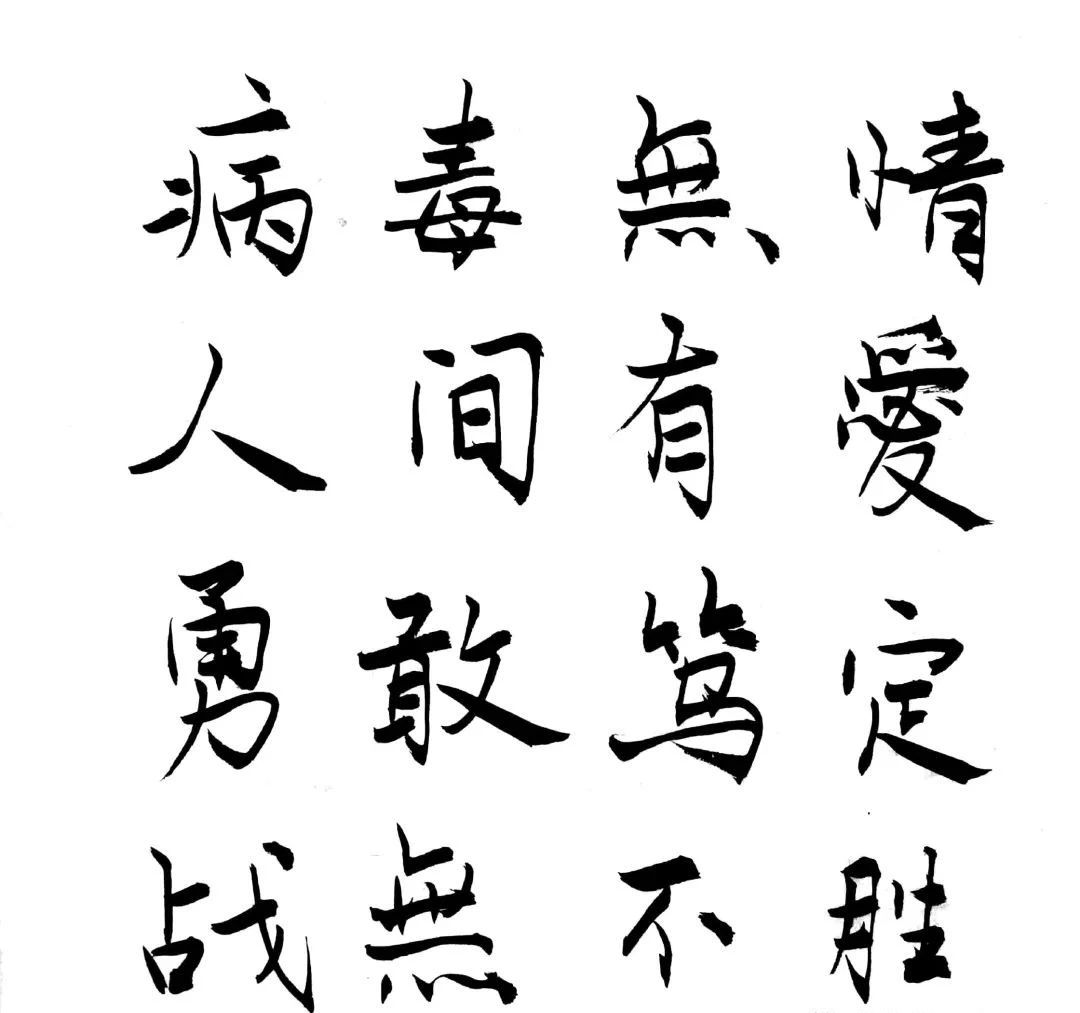 病毒無情
人间有愛
勇敢笃定
战無不胜